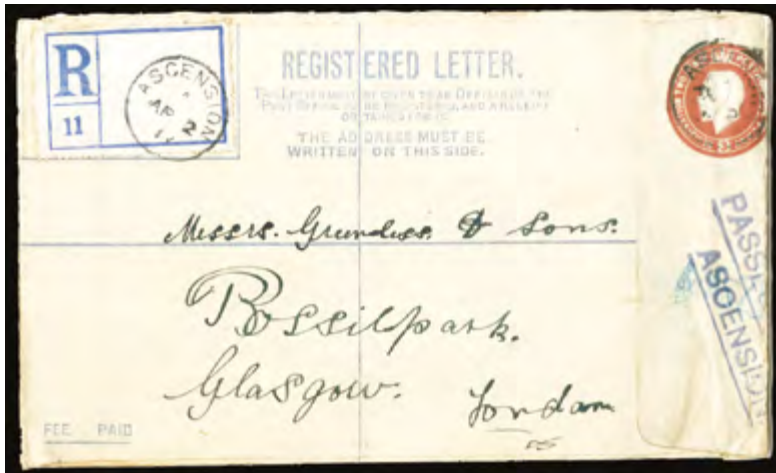 R
11
ASCENSION
AP 2
REGISTERED LETTER.
THIS LETTER MUST BE GIVEN TO AN OFFICER OF THE
POST OFFICE TO BE REGISTERED, AND A RECEIPT
OBTAINED FOR IT.
THE ADDRESS MUST BE
WRITTEN ON THIS SIDE.
Messrs. & Sons.
Possilpark.
Glasgow.
London
FEE PAID
ASCENSION